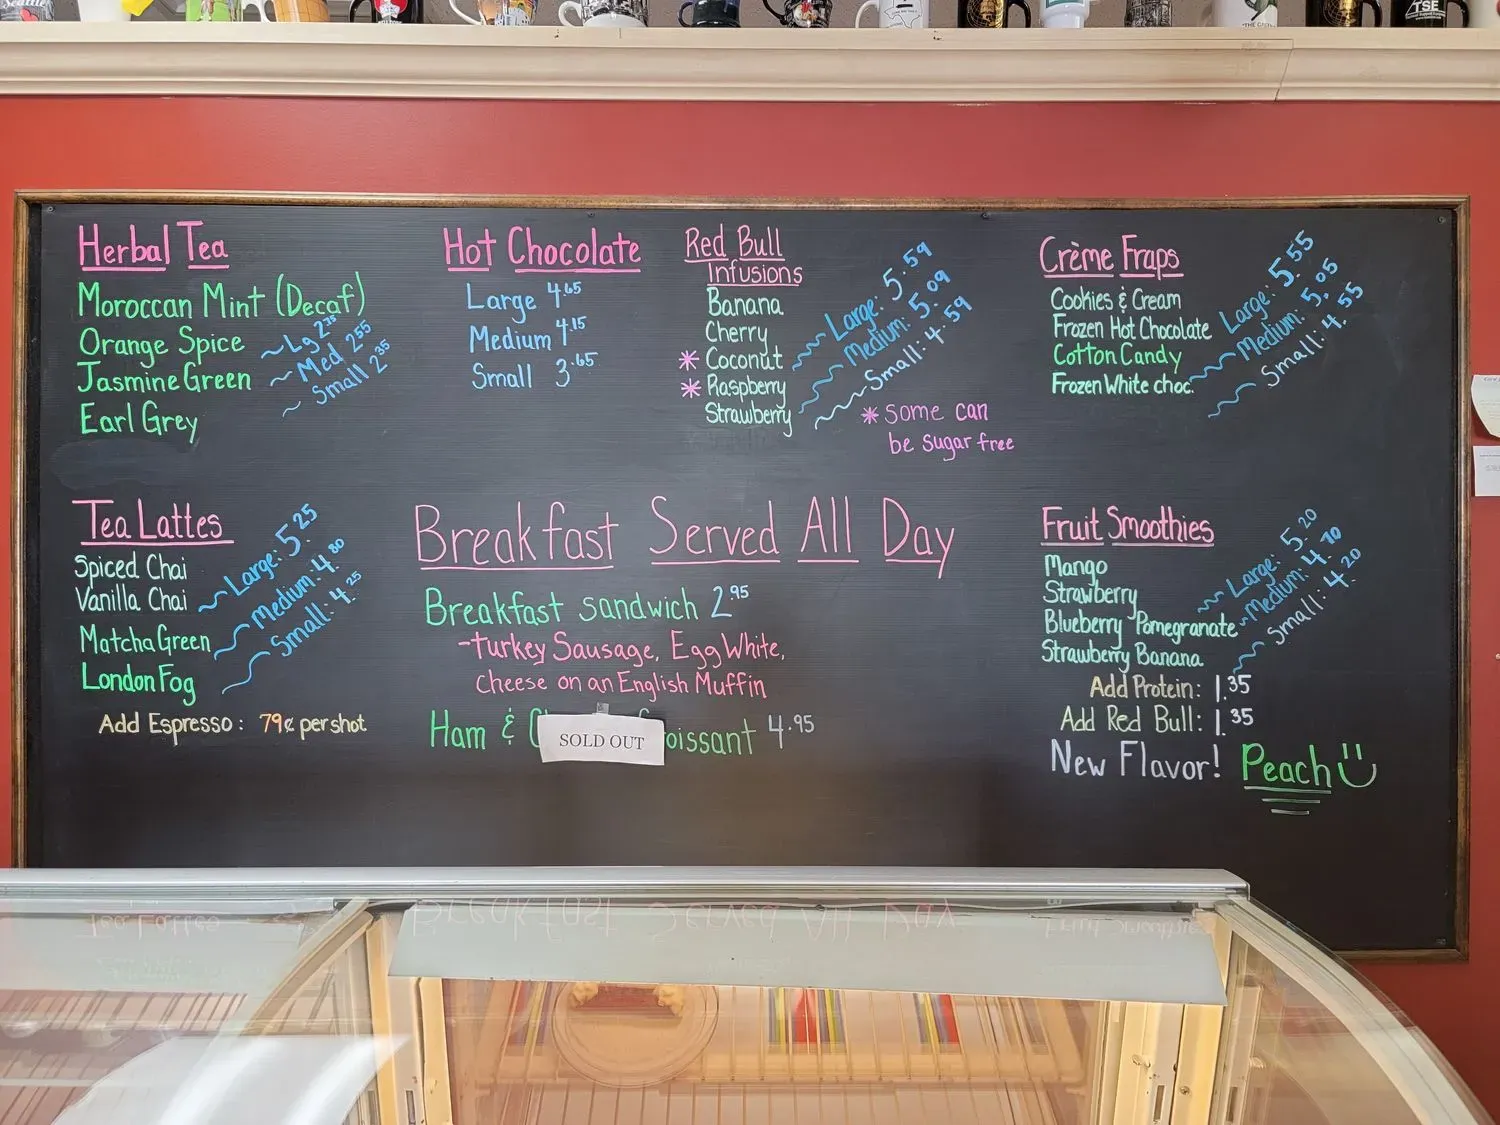 Seattle
TSE
Herbal Tea
Moroccan Mint (Decaf)
Orange Spice
Jasmine Green
Earl Grey
Lg 2.75
Med 2.55
Small 2.35
Hot Chocolate
Large 4.65
Medium 4.15
Small 3.65
Red Bull
Infusions
Banana
Cherry
* Coconut
* Raspberry
Strawberry
Large: 5.59
Medium: 5.09
Small: 4.59
* some can
be sugar free
Crème Fraps
Cookies & Cream
Frozen Hot Chocolate
Cotton Candy
Frozen White choc.
Large: 5.55
Medium: 5.05
Small: 4.55
Tea Lattes
Spiced Chai
Vanilla Chai
Matcha Green
London Fog
Large: 5.25
Medium: 4.80
Small: 4.25
Add Espresso: 79¢ per shot
Breakfast Served All Day
Breakfast sandwich 2.95
-turkey Sausage, Egg White,
cheese on an English Muffin
Ham & oissant 4.95
SOLD OUT
Fruit Smoothies
Mango
Strawberry
Blueberry Pomegranate
Strawberry Banana
Large: 5.20
Medium: 4.70
Small: 4.20
Add Protein: 1.35
Add Red Bull: 1.35
New Flavor! Peach